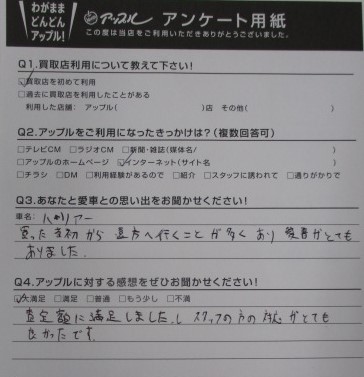 わがまま
どんどん
アップル！
アップル アンケート用紙
この度は当店をご利用いただきありがとうございました。
Q1.買取店利用について教えて下さい！
☑買取店を初めて利用
□過去に買取店を利用したことがある
利用した店舗： アップル( )店 その他( )
Q2.アップルをご利用になったきっかけは？(複数回答可)
□テレビCM □ラジオCM □新聞・雑誌(媒体名/ )
□アップルのホームページ ☑インターネット(サイト名 )
□チラシ □DM □利用経験があるので □紹介 □スタッフに誘われて □通りがかりで
Q3.あなたと愛車との思い出をお聞かせください！
車名： ハリアー
買った当初から遠方へ行くことが多くあり 愛着がとても
ありました。
Q4.アップルに対する感想をぜひお聞かせください！
☑大満足 □満足 □普通 □もう少し □不満
査定額に満足しましたし スタッフの方の対応がとても
良かったです。